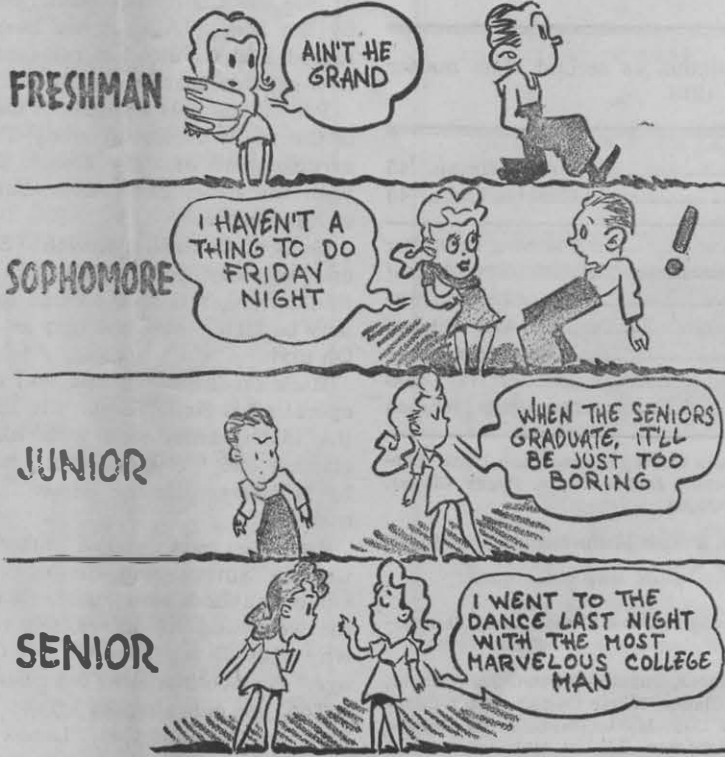 FRESHMAN
AIN'T HE
GRAND
SOPHOMORE
I HAVEN'T A
THING TO DO
FRIDAY
NIGHT
!
JUNIOR
WHEN THE SENIORS
GRADUATE, IT'LL
BE JUST TOO
BORING
SENIOR
I WENT TO THE
DANCE LAST NIGHT
WITH THE MOST
MARVELOUS COLLEGE
MAN